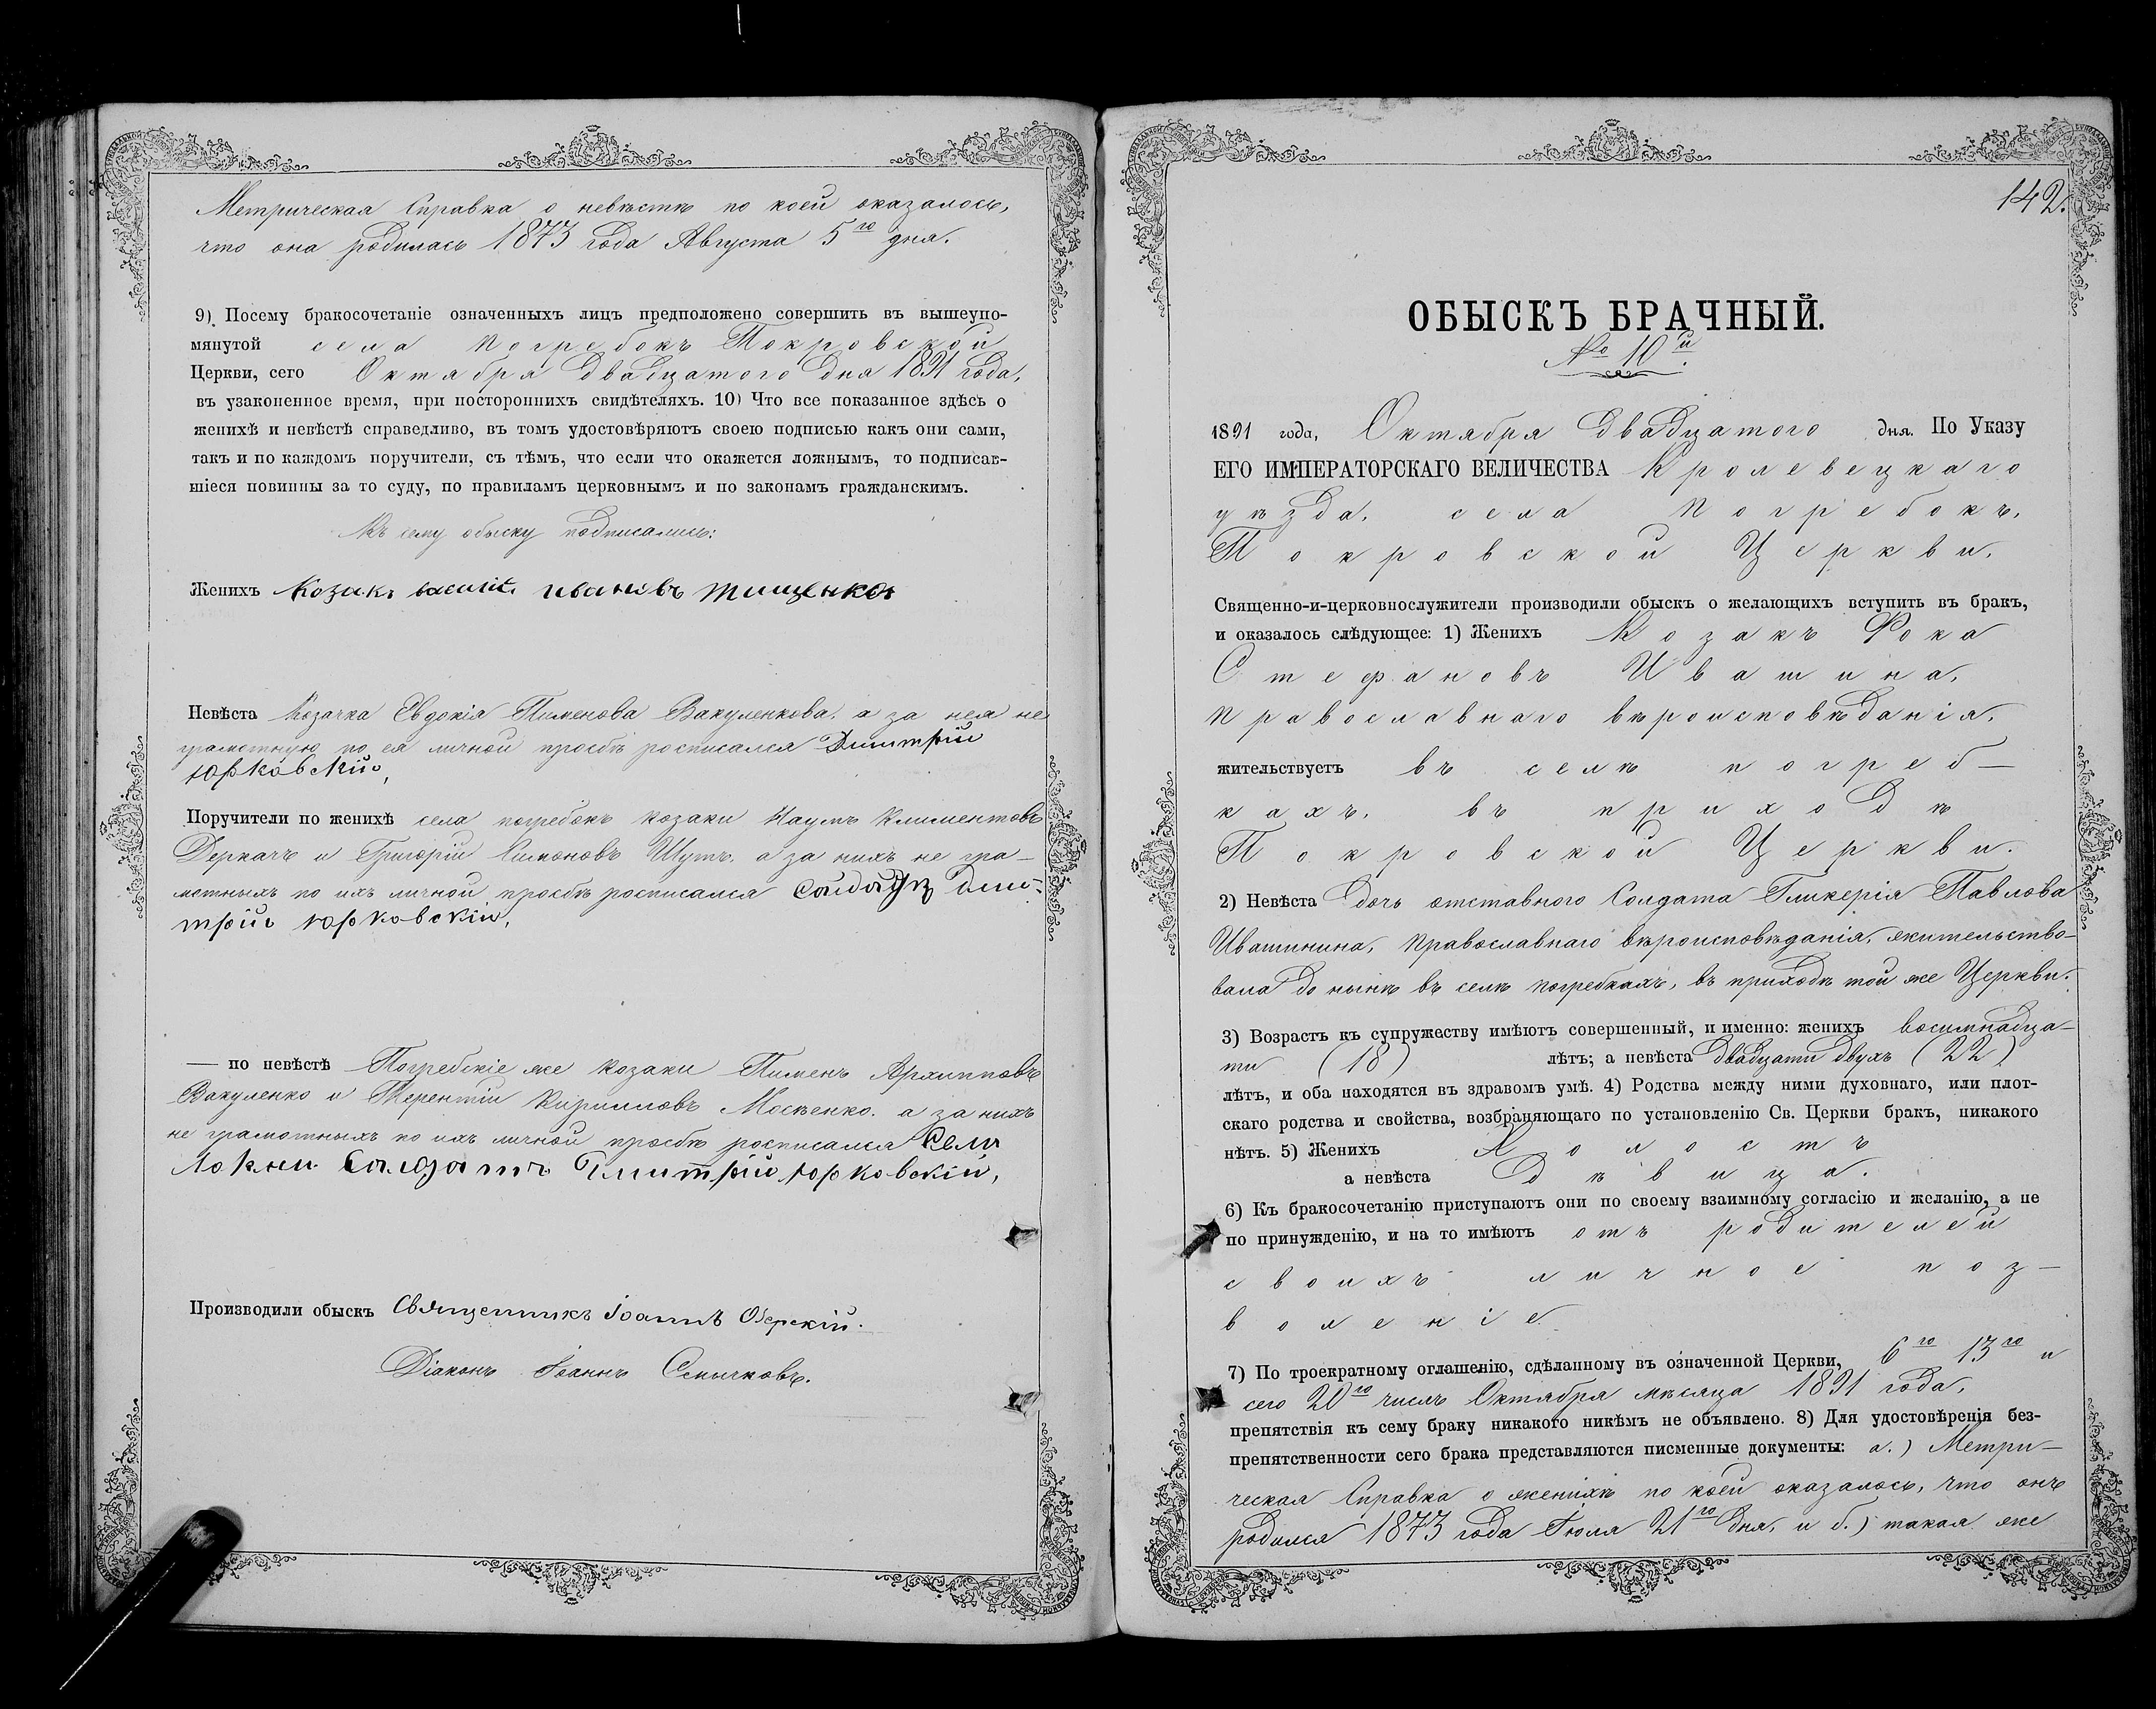 Метрическая Справка о невѣстѣ по коей оказалось,
что она родилась 1873 года Августа 5го дня.
9) Посему бракосочетаніе означенныхъ лицъ предположено совершить въ вышеупо-
мянутой села Погребокъ Покровской
Церкви, сего Октября двадцатого дня 1891 года,
въ узаконенное время, при постороннихъ свидѣтеляхъ. 10) Что все показанное здѣсь о
женихѣ и невѣстѣ справедливо, въ томъ удостовѣряютъ своею подписью какъ они сами,
такъ и по каждомъ поручители, съ тѣмъ, что если что окажется ложнымъ, то подписав-
шіеся повинны за то суду, по правиламъ церковнымъ и по законамъ гражданскимъ.
Къ сему обыску подписались:
Женихъ Козакъ Ивановъ Тищенко
Невѣста Козачка Евдокія Пименова Вакуленкова, а за нея не
грамотную по ея личной просьбѣ росписался Димитрій
Юрковскій,
Поручители по женихѣ села погребокъ козаки Наумъ Климентовъ
Деркачъ и Григорій Симоновъ Шутъ, а за нихъ не гра-
мотныхъ по ихъ личной просьбѣ росписался Солдатъ Дми-
трій Юрковскій,
— по невѣстѣ Погребскіе же козаки Пименъ Архипповъ
Вакуленко и Терентій Кирилловъ Москенко, а за нихъ
не грамотныхъ по ихъ личной просьбѣ росписался Села
Локни Салдатъ Дмитрій Юрковскій,
Производили обыскъ Священникъ Іоаннъ Озерскій.
Діаконъ Іоаннъ Смычковъ.
142.
ОБЫСКЪ БРАЧНЫЙ.
№ 10й
1891 года, Октября двадцатого дня. По Указу
ЕГО ИМПЕРАТОРСКАГО ВЕЛИЧЕСТВА Кролевецкаго
уѣзда, села Погребокъ,
Покровской Церкви,
Священно-и-церковнослужители производили обыскъ о желающихъ вступить въ бракъ,
и оказалось слѣдующее: 1) Женихъ Козакъ Фока
Стефановъ Ивашина,
православнаго вѣроисповѣданія,
жительствуетъ въ селѣ погреб-
кахъ, въ приходѣ
Покровской Церкви.
2) Невѣста дочь отставного Солдата Гликерія Павлова
Ивашинина, православнаго вѣроисповѣданія, жительство-
вала до нынѣ въ селѣ погребкахъ, въ приходѣ той же Церкви.
3) Возрастъ къ супружеству имѣютъ совершенный, и именно: женихъ восимнадца-
ти (18) лѣтъ; а невѣста двадцати двухъ (22)
лѣтъ, и оба находятся въ здравомъ умѣ. 4) Родства между ними духовнаго, или плот-
скаго родства и свойства, возбраняющаго по установленію Св. Церкви бракъ, никакого
нѣтъ. 5) Женихъ Холостъ
а невѣста Дѣвица.
6) Къ бракосочетанію приступаютъ они по своему взаимному согласію и желанію, а не
по принужденію, и на то имѣютъ отъ родителей
своихъ личное поз-
воленіе.
7) По троекратному оглашенію, сдѣланному въ означенной Церкви, 6го 13го и
сего 20го числъ Октября мѣсяца 1891 года,
препятствія къ сему браку никакого никѣмъ не объявлено. 8) Для удостовѣренія без-
препятственности сего брака представляются писменные документы: а.) Метри-
ческая Справка о женихѣ по коей оказалось, что онъ
родился 1873 года Іюля 21го дня, и б.) такая же